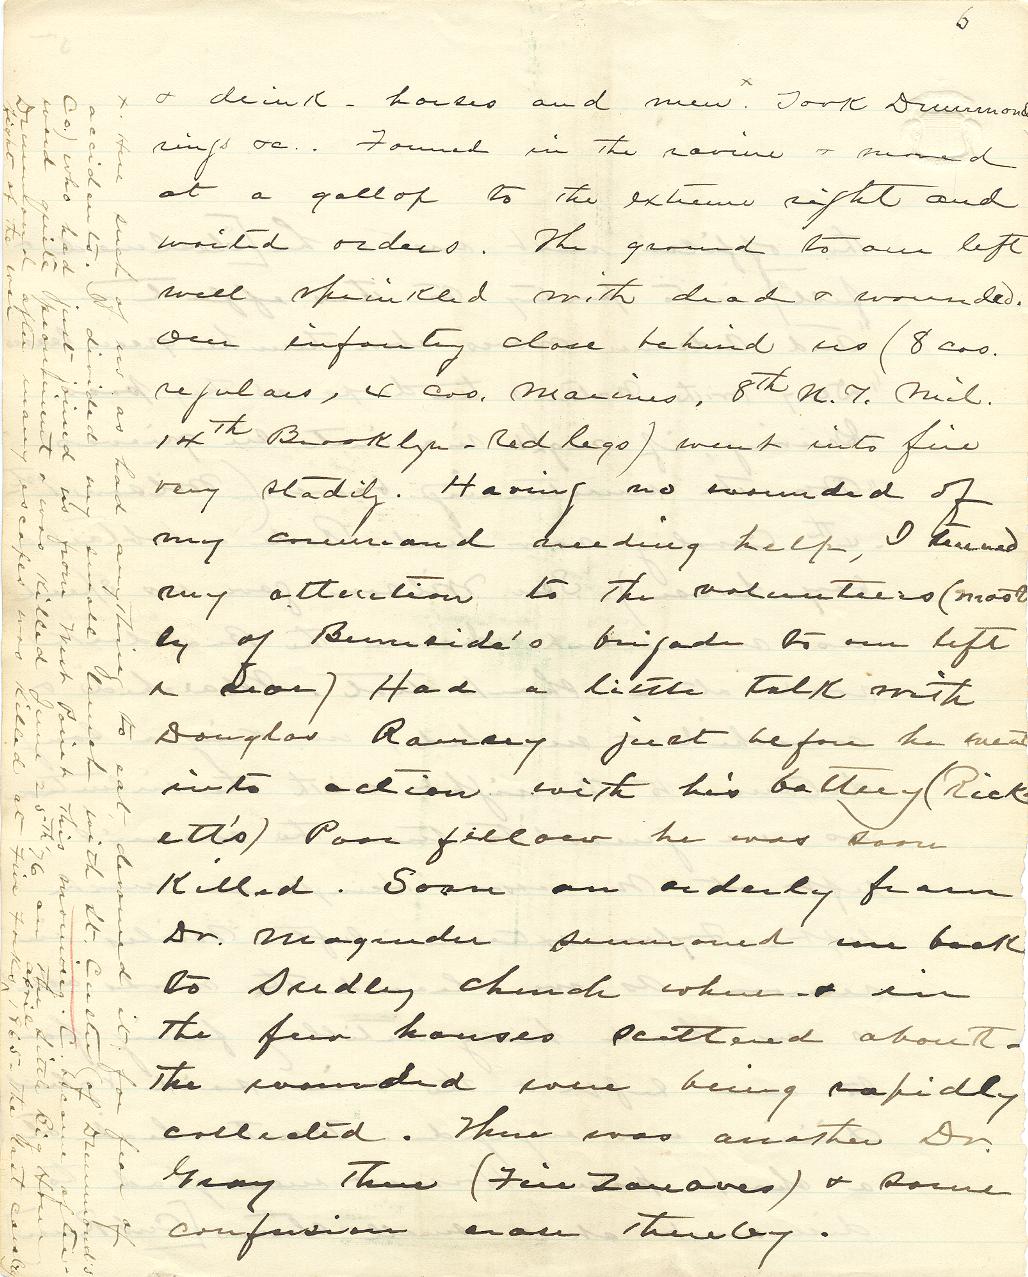 6
& drink - horses and men x. Took Drummonds
rings &c.. Formed in the ravine & moved
at a gallop to the extreme right and
waited orders. The ground to our left
well sprinkled with dead & wounded.
Our infantry close behind us (8 cos.
regulars, 4 cos. Marines, 8th N.Y. Mil.
14th Brooklyn - Red legs) went into fire
very stadily. Having no wounded of
my command needing help, I turned
my attention to the volunteers (most
ly of Burnside's brigade to our left
& rear) Had a little talk with
Douglas Ramsey just before he went
into action with his battery (Rick-
ett's) Poor fellow he was soon
killed. Soon an orderly from
Dr. Magruder summoned me back
to Sudley Church where - & in
the few houses scattered about -
the wounded were being rapidly
collected. There was another Dr.
Gray there (Fire Zouaves) & some
confusion arose thereby.
x. Here such of us as had anything to eat, devoured it, for fear of
accidents. I divided my small lunch with Lt. Custer (of Drummond's
Co.) who had just joined us from West Point this morning. C. became after-
ward quite prominent & was killed June 25th '76 on the Little Big Horn
Drummond after many escapes was killed at Five Forks, April 1865 - the last cavalry
fight of the war